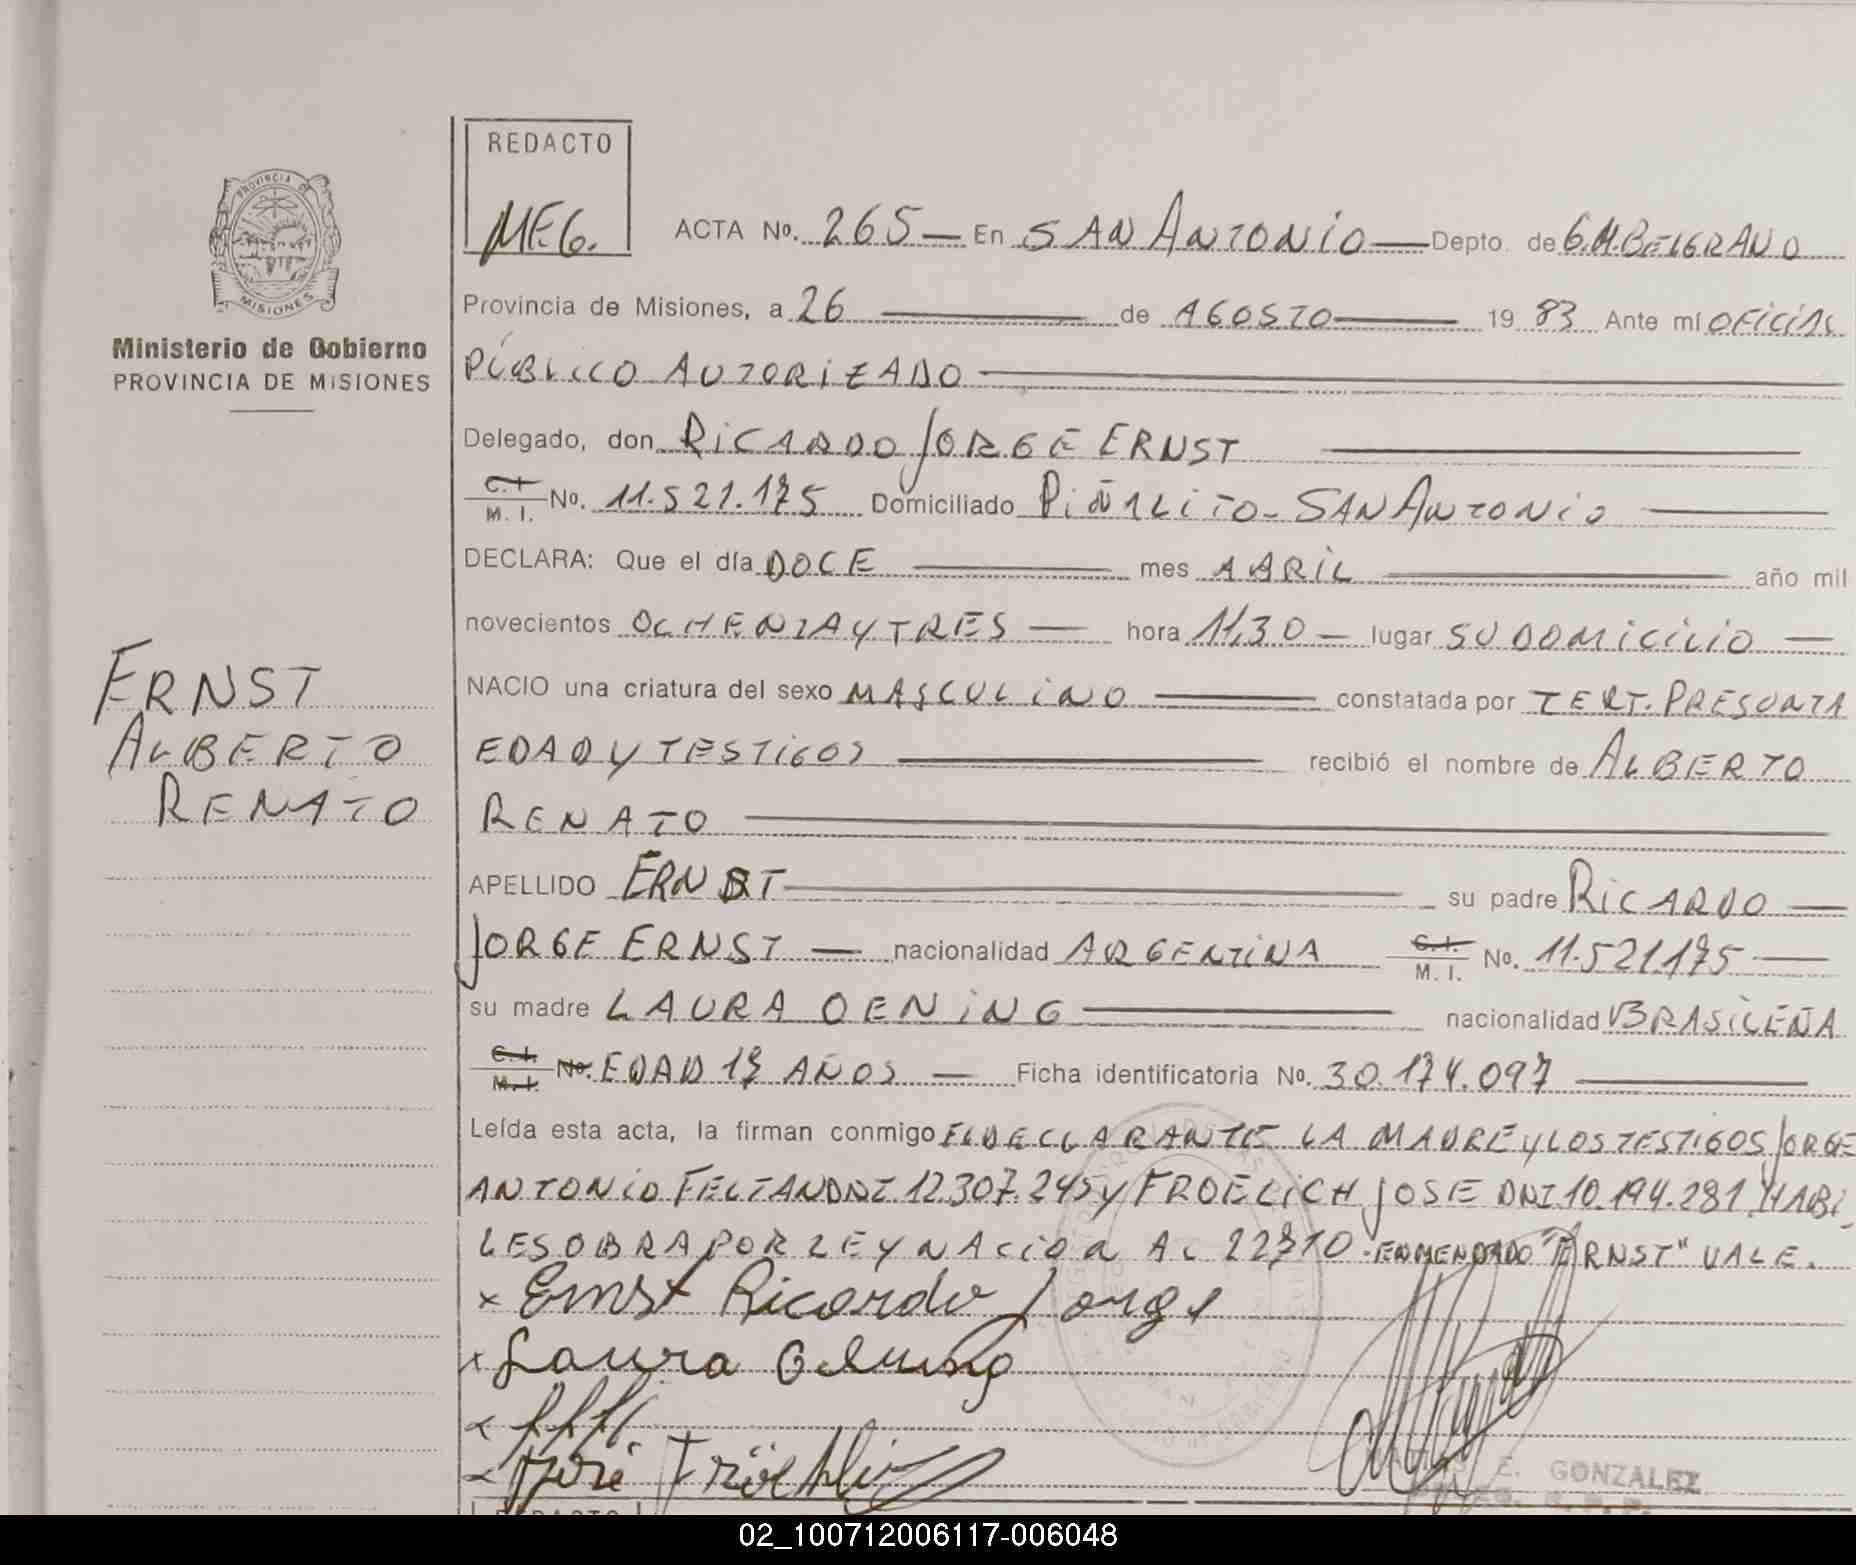 REDACTO
MEG.
ACTA No. 265 — En SAN ANTONIO — Depto. de G.M. BELGRANO
PROVINCIA DE
MISIONES
Provincia de Misiones, a 26 — de AGOSTO — 19 83 Ante mí OFICIAL
Ministerio de Gobierno
PROVINCIA DE MISIONES
PÚBLICO AUTORIZADO —
Delegado, don RICARDO JORGE ERNST —
C.I. M. I. No. 11.521.175 Domiciliado PIÑALITO - SAN ANTONIO —
DECLARA: Que el día DOCE — mes ABRIL — año mil
novecientos OCHENTA Y TRES — hora 11,30 — lugar SU DOMICILIO —
ERNST
ALBERTO
RENATO
NACIO una criatura del sexo MASCULINO — constatada por CERT. PRESUNTA
EDAD Y TESTIGOS — recibió el nombre de ALBERTO
RENATO —
APELLIDO ERNST — su padre RICARDO —
JORGE ERNST — nacionalidad ARGENTINA C.I. M. I. No. 11.521.175 —
su madre LAURA OENING — nacionalidad BRASILEÑA
C.I. M.I. No. EDAD 17 AÑOS — Ficha identificatoria No. 30.174.097 —
Leída esta acta, la firman conmigo EL DECLARANTE LA MADRE Y LOS TESTIGOS JORGE
ANTONIO DNI 12.307.245 Y FROELICH JOSE DNI 10.194.281 HABI-
LES OBRA POR LEY NACIONAL 22710 - ENMENDADO "ERNST" VALE.
x Ernst Ricardo Jorge
x Laura Oening
José
E. GONZALEZ
REDACTO
02_100712006117-006048